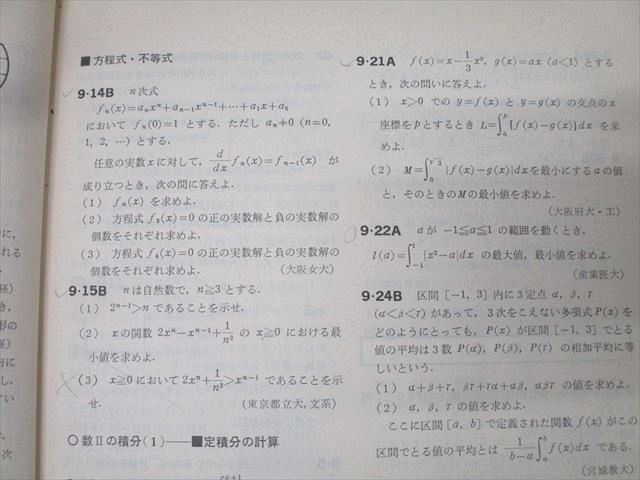 ■方程式・不等式
9・14B n次式
fₙ(x)=aₙxⁿ+aₙ₋₁xⁿ⁻¹+…+a₁x+a₀
において fₙ(0)=1 とする. ただし aₙ≠0 (n=0,
1, 2, …) とする.
任意の実数xに対して, d/dx fₙ(x)=fₙ₋₁(x) が
成り立つとき, 次の問に答えよ.
(1) fₙ(x) を求めよ.
(2) 方程式 f₃(x)=0 の正の実数解と負の実数解の
個数をそれぞれ求めよ.
(3) 方程式 f₄(x)=0 の正の実数解と負の実数解の
個数をそれぞれ求めよ. (大阪女大)
9・15B nは自然数で, n≧3 とする.
(1) 2ⁿ⁻¹>n であることを示せ.
(2) xの関数 2xⁿ−xⁿ⁻¹+1/n² の x≧0 における最
小値を求めよ.
(3) x≧0 において 2xⁿ+1/n²>xⁿ⁻¹ であることを示
せ. (東京都立大, 文系)
○数Ⅱの積分(1)——■定積分の計算
9・21A f(x)=x−1/3 x³, g(x)=ax (a<1) とする
とき, 次の問いに答えよ.
(1) x>0 での y=f(x) と y=g(x) の交点のx
座標をpとするとき L=∫₀ᵖ{f(x)−g(x)}dx を求
めよ.
(2) M=∫₀^√3 |f(x)−g(x)|dx を最小にするaの値
と, そのときのMの最小値を求めよ.
(大阪府大・工)
9・22A aが −1≦a≦1 の範囲を動くとき,
I(a)=∫₋₁¹|x²−a|dx の最大値, 最小値を求めよ.
(産業医大)
9・24B 区間 [−1, 3] 内に3定点 α, β, γ
(α<β<γ) があって, 3次をこえない多項式P(x)を
どのようにとっても, P(x) が区間 [−1, 3] でとる
値の平均は3数 P(α), P(β), P(γ) の相加平均に等
しいという.
(1) α+β+γ, βγ+γα+αβ, αβγ の値を求めよ.
(2) α, β, γ の値を求めよ.
ここに区間 [a, b] で定義された関数 f(x) がこの
区間でとる値の平均とは 1/(b−a) ∫ₐᵇ f(x)dx である.
(宮城教大)